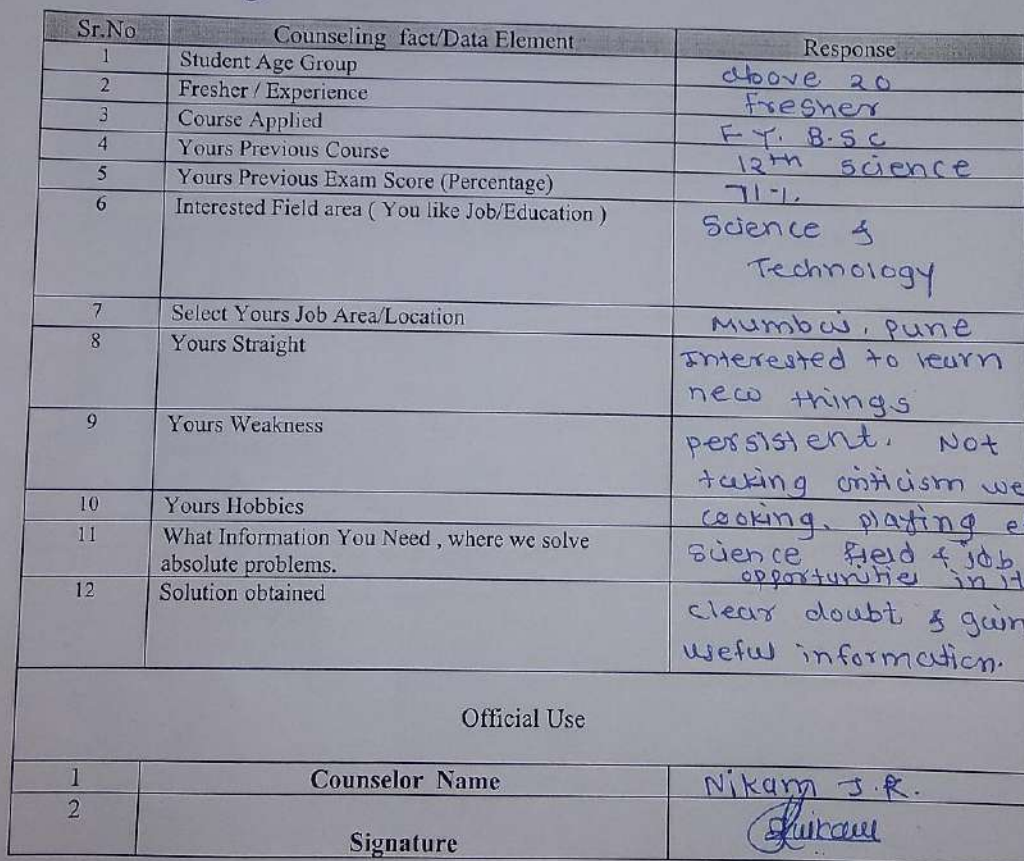 Sr.No Counseling fact/Data Element Response
1 Student Age Group above 20
2 Fresher / Experience Fresher
3 Course Applied F Y. B.Sc
4 Yours Previous Course 12th science
5 Yours Previous Exam Score (Percentage) 71%.
6 Interested Field area ( You like Job/Education ) Science &
Technology
7 Select Yours Job Area/Location Mumbai, pune
8 Yours Straight Interested to learn
new things
9 Yours Weakness persistent. Not
taking criticism we
10 Yours Hobbies cooking, playing e
11 What Information You Need , where we solve science field & job
absolute problems. opportunities in it
12 Solution obtained clear doubt & gain
useful information.
Official Use
1 Counselor Name Nikam J.R.
2
Signature